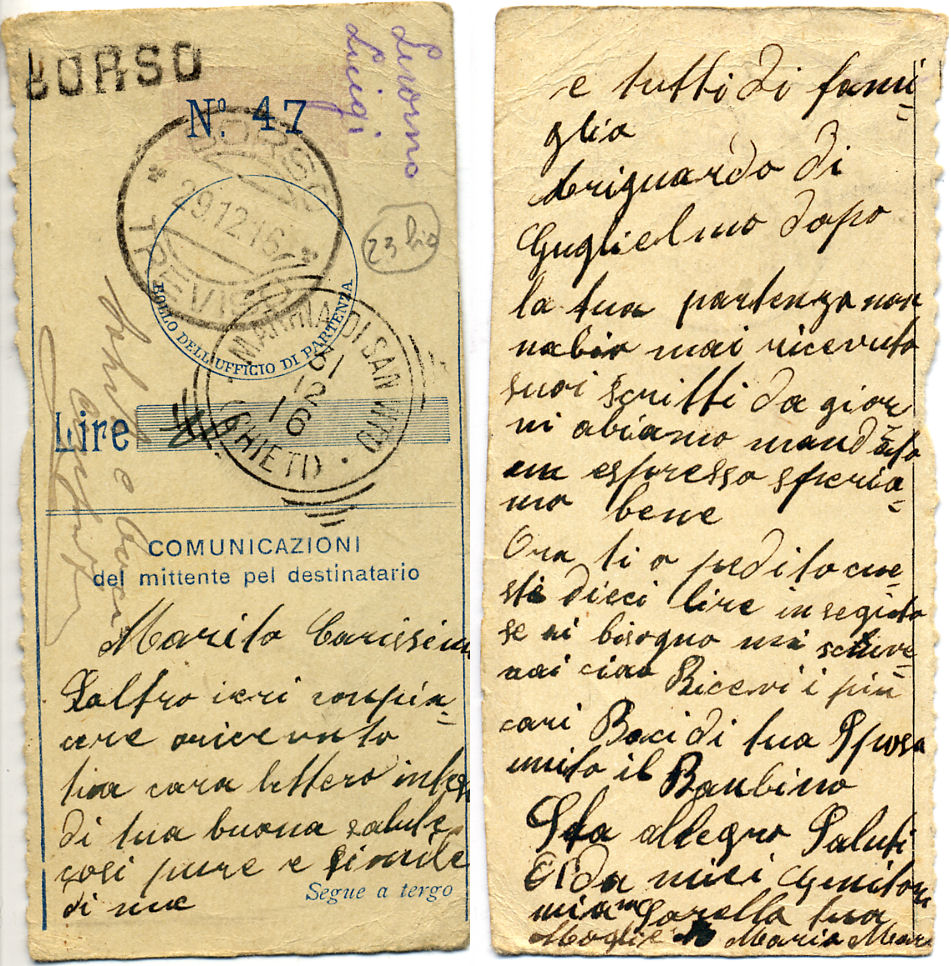 BORSO
Livorno
Luigi
Nº. 47
BORSO
29.12.16
TREVISO
23 bis
BOLLO DELL'UFFICIO DI PARTENZA
MARINA DI SAN
31
12
16
(CHIETI)
Lire
COMUNICAZIONI
del mittente pel destinatario
Marito Carissimo
Laltro ieri conpia-
cere oricevuto
tua cara lettera inteso
di tua buona salute
cosi pure e simile
di me
Segue a tergo
e tutti di fami-
glia
Ariguardo di
Guglielmo dopo
la tua partenza non
nabia mai ricevuto
suoi scritti da gior
ni abiamo mandato
un espresso speria-
mo bene
Ora ti o spedito cue-
ste dieci lire in seguito
se ai bisogno mi scrive-
rai ciao Ricevi i piu
cari Baci di tua Sposa
unito il Banbino
Sta allegro Saluti
Da miei Genitori
mia Sorella tua
Moglie Maria